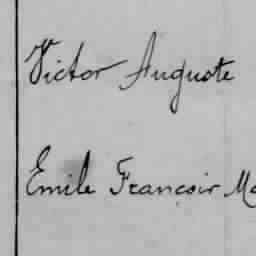 Victor Auguste
Emile Francois